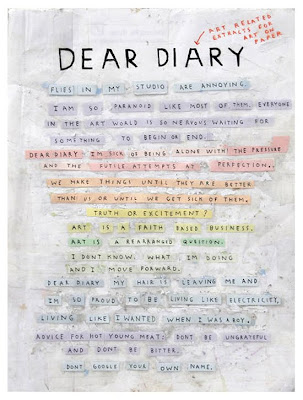 ART RELATED
EXTRACTS FOR
ART ON
PAPER
DEAR DIARY
FLIES IN MY STUDIO ARE ANNOYING.
I AM SO PARANOID LIKE MOST OF THEM. EVERYONE
IN THE ART WORLD IS SO NERVOUS WAITING FOR
SOMETHING TO BEGIN OR END.
DEAR DIARY IM SICK OF BEING ALONE WITH THE PRESSURE
AND THE FUTILE ATTEMPTS AT PERFECTION.
WE MAKE THINGS UNTIL THEY ARE BETTER
THAN US OR UNTIL WE GET SICK OF THEM.
TRUTH OR EXCITEMENT?
ART IS A FAITH BASED BUSINESS.
ART IS A REARRANGED QUESTION.
I DONT KNOW WHAT IM DOING
AND I MOVE FORWARD.
DEAR DIARY MY HAIR IS LEAVING ME AND
IM SO PROUD TO BE LIVING LIKE ELECTRICITY,
LIVING LIKE I WANTED WHEN I WAS A BOY.
ADVICE FOR HOT YOUNG MEAT: DONT BE UNGRATEFUL
AND DONT BE BITTER.
DONT GOOGLE YOUR OWN NAME.